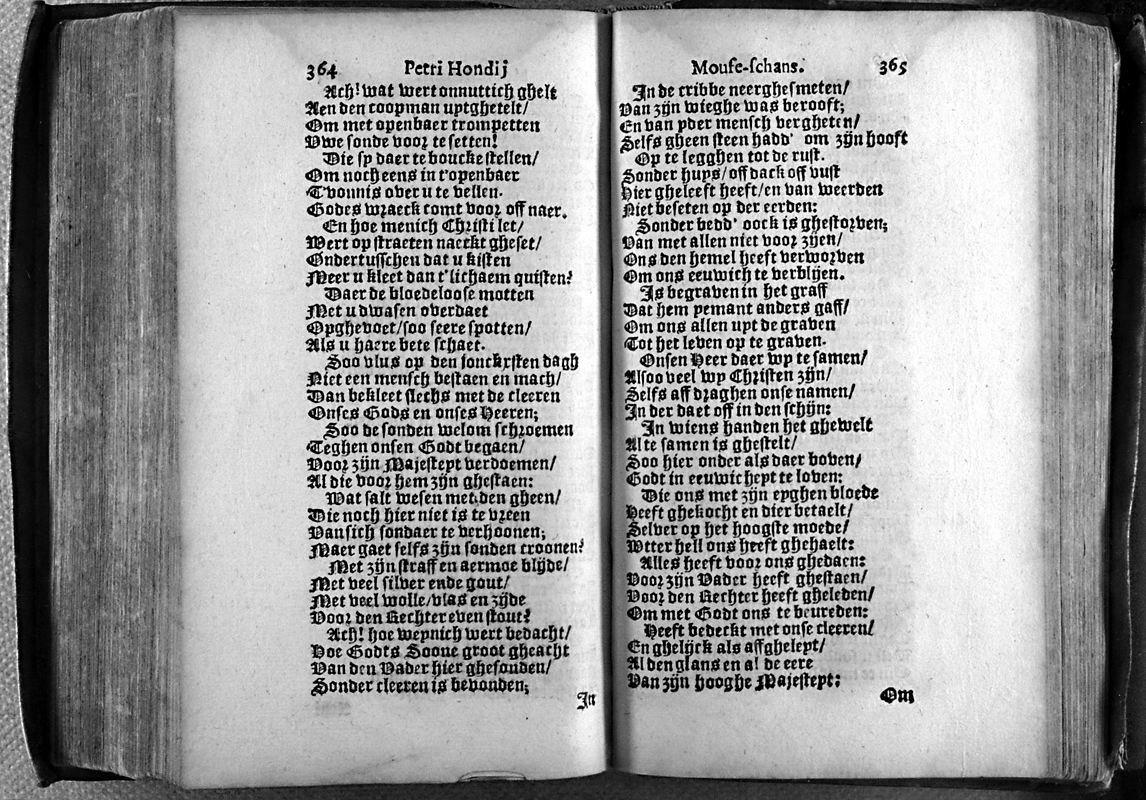 364 Petri Hondij
Ach! wat wert onnuttich ghelt
Aen den coopman uytghetelt/
Om met openbaer trompetten
Uwe sonde voor te setten!
Die sy daer te boucke stellen/
Om noch eens in t'openbaer
T'vonnis over u te vellen.
Godes wraeck comt voor off naer.
En hoe menich Christi let/
Wert op straeten naeckt gheset/
Ondertusschen dat u kisten
Meer u kleet dan t'lichaem quisten?
Daer de bloedeloose motten
Met u dwasen overdaet
Opghevoet/soo seere spotten/
Als u haere bete schaet.
Soo vlus op den jonckxsten dagh
Niet een mensch bestaen en mach/
Dan bekleet slechs met de cleeren
Onses Gods en onses Heeren;
Soo de sonden welom schroemen
Teghen onsen Godt begaen/
Voor zijn Majesteyt verdoemen/
Al die voor hem zijn ghestaen:
Wat salt wesen met den gheen/
Die noch hier niet is te vreen
Van sich sondaer te verhoonen;
Maer gaet selfs zijn sonden croonen?
Met zijn straff en aermoe blijde/
Met veel silver ende gout/
Met veel wolle/vlas en zijde
Voor den Rechter even stout?
Ach! hoe weynich wert bedacht/
Hoe Godts Soone groot gheacht
Van den Vader hier ghesonden/
Sonder cleeren is bevonden;
In
Mouse-schans. 365
In de cribbe neerghesmeten/
Van zijn wieghe was berooft;
En van yder mensch vergheten/
Selfs gheen steen hadd' om zijn hooft
Op te legghen tot de rust.
Sonder huys/off dack off vust
Hier gheleeft heeft/en van weerden
Niet beseten op der eerden:
Sonder bedd' oock is ghestorven;
Van met allen niet voor zijen/
Ons den hemel heeft verworven
Om ons eeuwich te verblijen.
Is begraven in het graff
Dat hem yemant anders gaff/
Om ons allen uyt de graven
Tot het leven op te graven.
Onsen Heer daer wy te samen/
Alsoo veel wy Christen zijn/
Selfs aff draghen onse namen/
In der daet off in den schijn:
In wiens handen het ghewelt
Al te samen is ghestelt/
Soo hier onder als daer boven/
Godt in eeuwicheyt te loven:
Die ons met zijn eyghen bloede
Heeft ghekocht en dier betaelt/
Selver op het hoogste moede/
Wtter hell ons heeft ghehaelt:
Alles heeft voor ons ghedaen:
Voor zijn Vader heeft ghestaen/
Voor den Rechter heeft gheleden/
Om met Godt ons te bevreden:
Heeft bedeckt met onse cleeren/
En ghelijck als affgheleyt/
Al den glans en al de eere
Van zijn hooghe Majesteyt:
Om